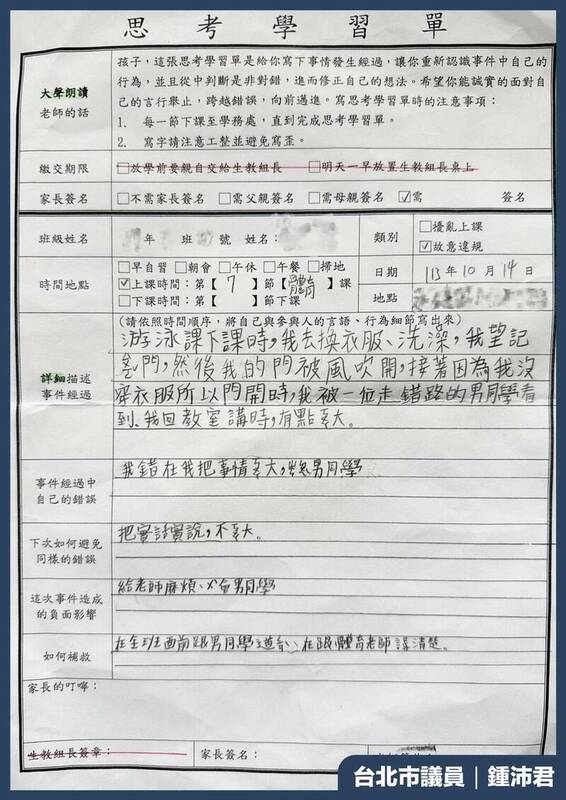 思考學習單
大聲朗讀
老師的話
孩子，這張思考學習單是給你寫下事情發生經過，讓你重新認識事件中自己的
行為，並且從中判斷是非對錯，進而修正自己的想法。希望你能誠實的面對自
己的言行舉止，跨越錯誤，向前邁進。寫思考學習單時的注意事項：
1. 每一節下課至學務處，直到完成思考學習單。
2. 寫字請注意工整並避免寫歪。
繳交期限
□放學前要親自交給生教組長 □明天一早放置生教組長桌上
家長簽名
□不需家長簽名 □需父親簽名 □需母親簽名 ☑需 簽名
班級姓名
年 班 號 姓名：
類別
□擾亂上課
☑故意違規
時間地點
□早自習 □朝會 □午休 □午餐 □掃地
☑上課時間：第【7】節【體育】課
□下課時間：第【 】節下課
日期
113年10月14日
地點
詳細描述
事件經過
(請依照時間順序，將自己與參與人的言語、行為細節寫出來)
游泳課下課時，我去換衣服、洗澡，我望記
門，然後我的門被風吹開，接著因為我沒
穿衣服所以門開時，我被一位走錯路的男同學看
到、我回教室講時，有點ㄎㄨㄚ大。
事件經過中
自己的錯誤
我錯在我把事情ㄎㄨㄚ大，男同學
下次如何避免
同樣的錯誤
把實話實說，不ㄎㄨㄚ大。
這次事件造成
的負面影響
給老師麻煩、男同學
如何補救
在全班面前跟男同學道、在跟體育老師講清楚。
家長的叮嚀：
生教組長簽章：
家長簽名：
台北市議員｜鍾沛君